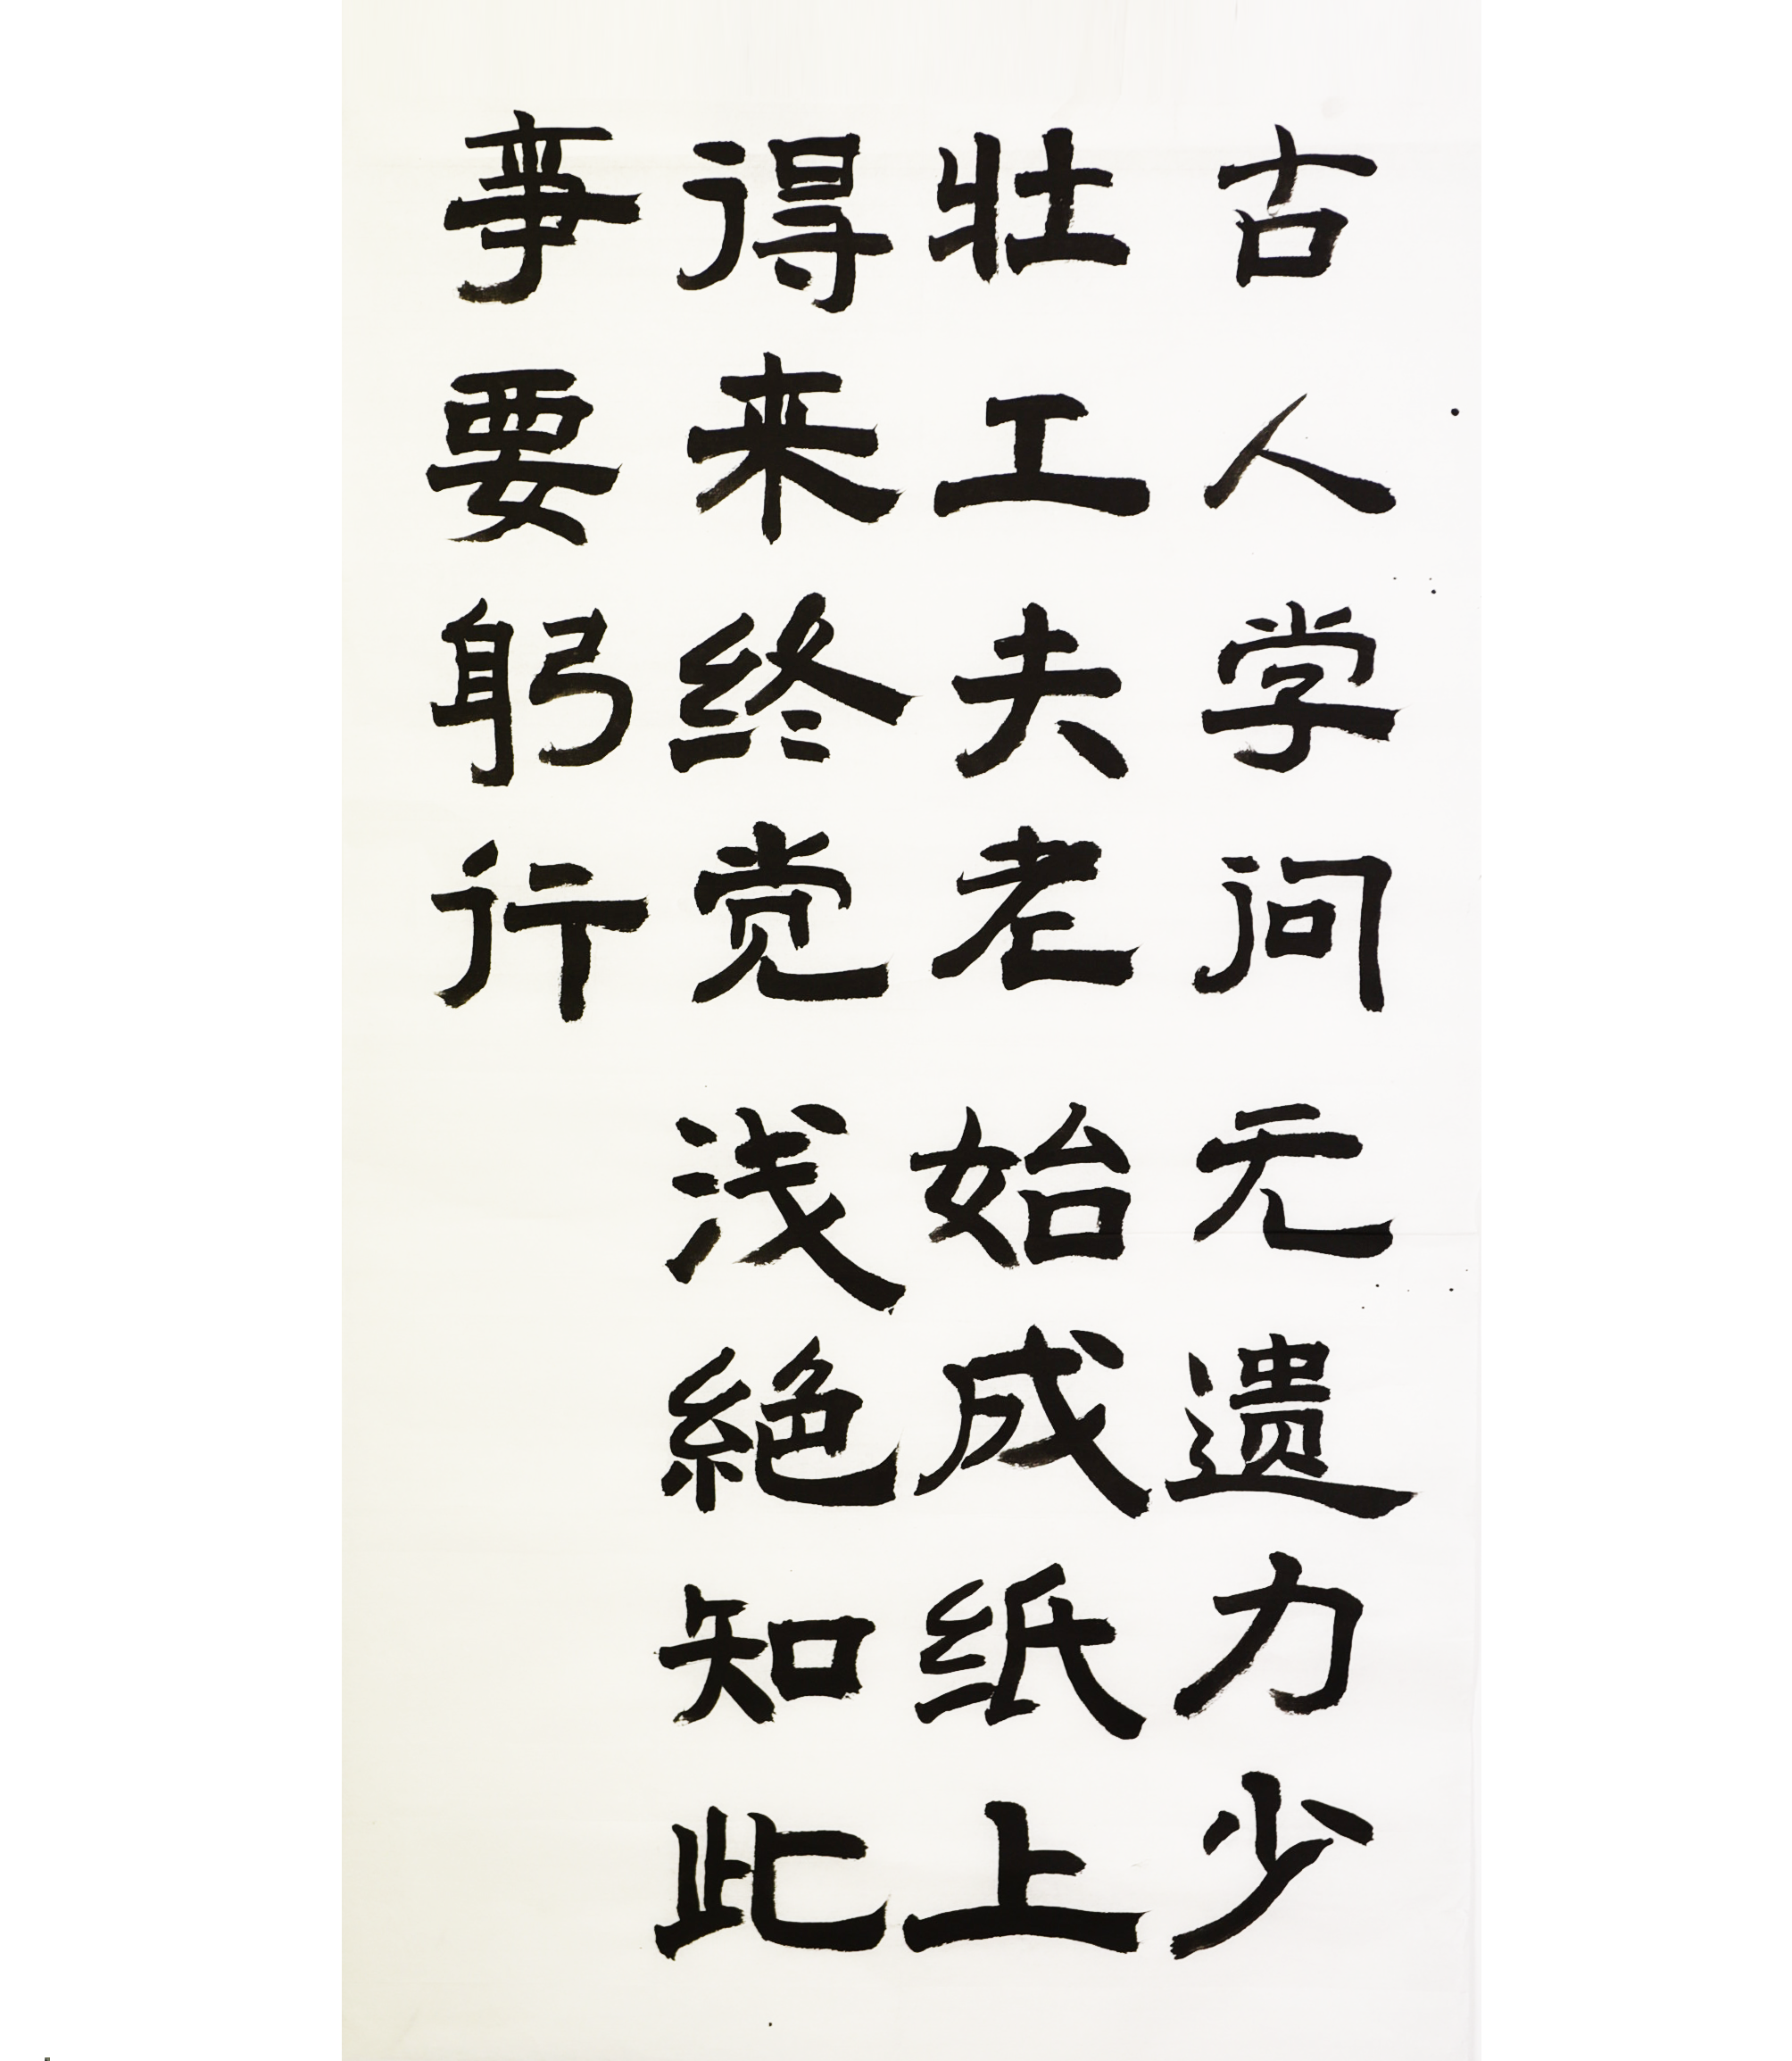 古人学问元遗力少
壮工夫老始成纸上
得来终觉浅絶知此
事要躬行